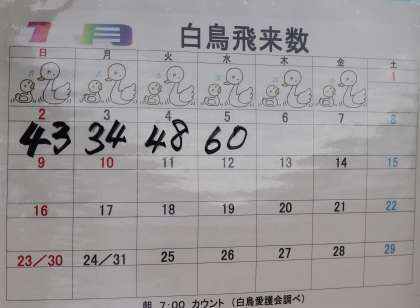 1月 白鳥飛来数
日 月 火 水 木 金 土
1
2 3 4 5 6 7 8
43 34 48 60
9 10 11 12 13 14 15
16 17 18 19 20 21 22
23/30 24/31 25 26 27 28 29
朝 7:00 カウント (白鳥愛護会調べ)